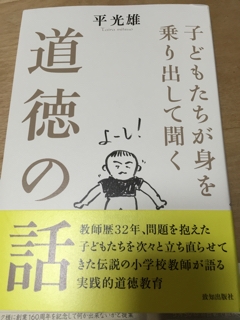 平光雄
子どもたちが身を
乗り出して聞く
道徳の話
よーし!
教師歴32年、問題を抱えた
子どもたちを次々と立ち直らせて
きた伝説の小学校教師が語る
実践的道徳教育
致知出版社